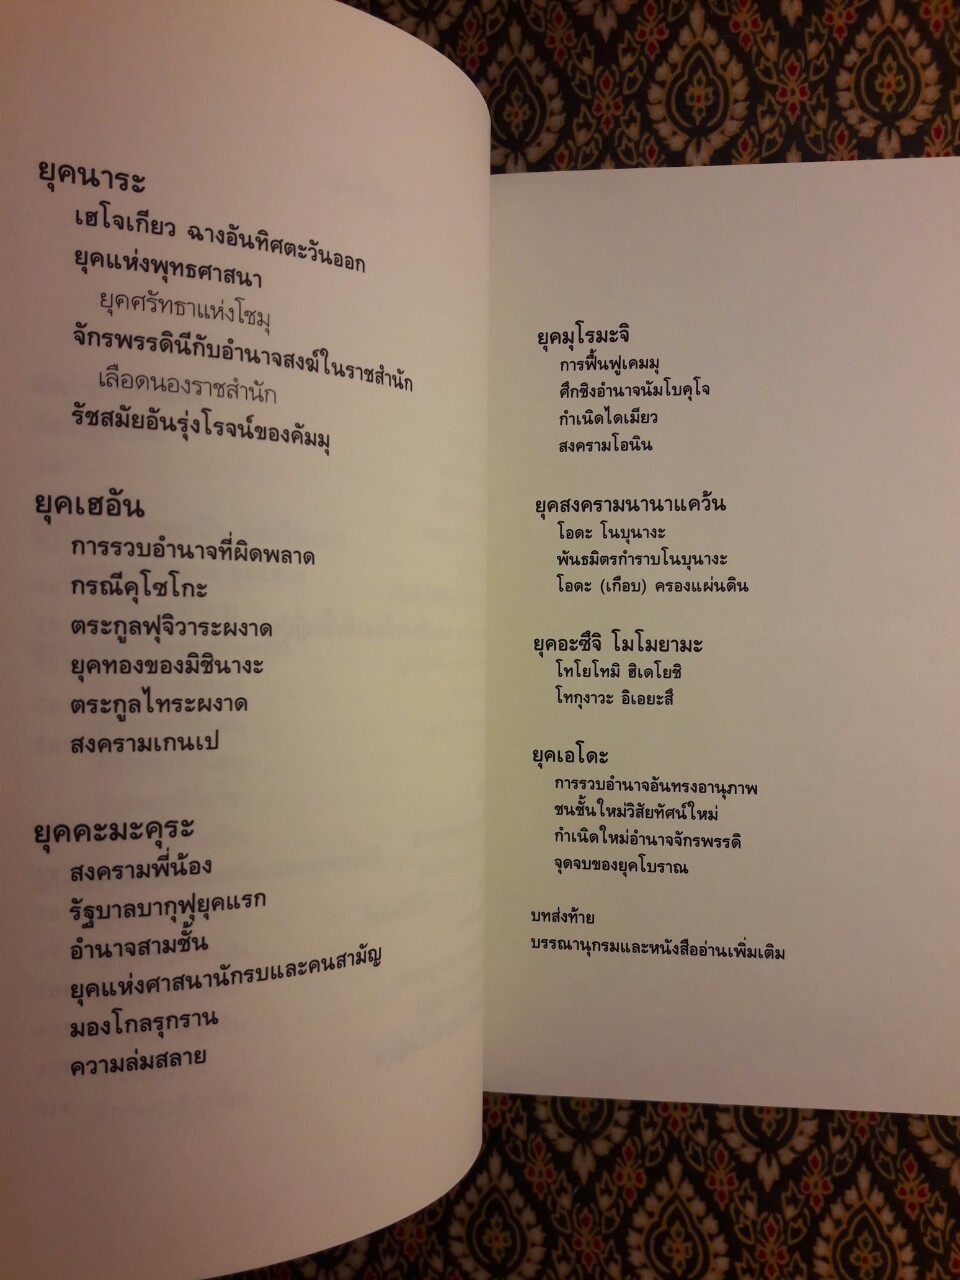 ยุคนาระ
เฮโจเกียว ฉางอันทิศตะวันออก
ยุคแห่งพุทธศาสนา
ยุคศรัทธาแห่งโชมุ
จักรพรรดินีกับอำนาจสงฆ์ในราชสำนัก
เลือดนองราชสำนัก
รัชสมัยอันรุ่งโรจน์ของคัมมุ
ยุคเฮอัน
การรวบอำนาจที่ผิดพลาด
กรณีคุโซโกะ
ตระกูลฟุจิวาระผงาด
ยุคทองของมิชินางะ
ตระกูลไทระผงาด
สงครามเกนเป
ยุคคะมะคุระ
สงครามพี่น้อง
รัฐบาลบากุฟุยุคแรก
อำนาจสามชั้น
ยุคแห่งศาสนานักรบและคนสามัญ
มองโกลรุกราน
ความล่มสลาย
ยุคมุโรมะจิ
การฟื้นฟูเคมมุ
ศึกชิงอำนาจนัมโบคุโจ
กำเนิดไดเมียว
สงครามโอนิน
ยุคสงครามนานาแคว้น
โอดะ โนบุนางะ
พันธมิตรกำราบโนบุนางะ
โอดะ (เกือบ) ครองแผ่นดิน
ยุคอะซึจิ โมโมยามะ
โทโยโทมิ ฮิเดโยชิ
โทกุงาวะ อิเอยะสึ
ยุคเอโดะ
การรวบอำนาจอันทรงอานุภาพ
ชนชั้นใหม่วิสัยทัศน์ใหม่
กำเนิดใหม่อำนาจจักรพรรดิ
จุดจบของยุคโบราณ
บทส่งท้าย
บรรณานุกรมและหนังสืออ่านเพิ่มเติม